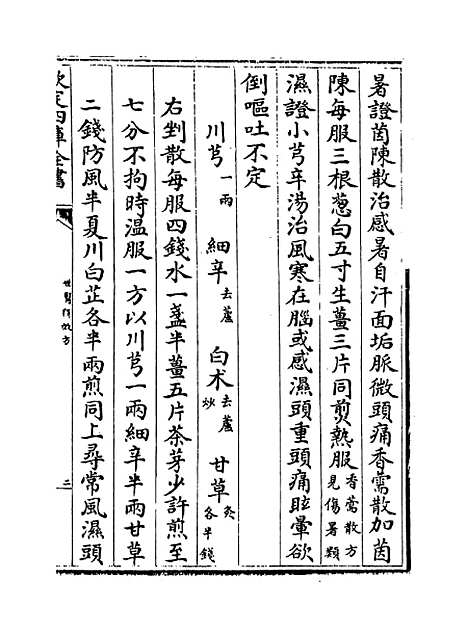 暑證茵陳散治感暑自汗面垢脈微頭痛香薷散加茵
陳每服三根葱白五寸生薑三片同煎熱服香薷散方見傷暑類
濕證小芎辛湯治風寒在腦或感濕頭重頭痛眩暈欲
倒嘔吐不定
川芎一兩 細辛去蘆 白术去蘆炒 甘草炙各半錢
右剉散每服四錢水一盞半薑五片茶芽少許煎至
七分不拘時温服一方以川芎一兩細辛半兩甘草
二錢防風半夏川白芷各半兩煎同上尋常風濕頭
欽定四庫全書
世醫得效方
三